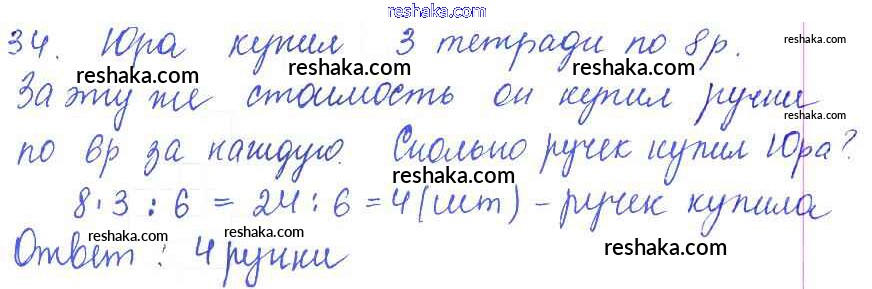 reshaka.com
34. Юра купил 3 тетради по 8р.
reshaka.com
reshaka.com reshaka.com reshaka.com
За эту же стоимость он купил ручки
reshaka.com
по 6р за каждую. Сколько ручек купил Юра?
reshaka.com
8·3:6 = 24:6 = 4 (шт) - ручек купила
reshaka.com reshaka.com
Ответ: 4 ручки
reshaka.com reshaka.com